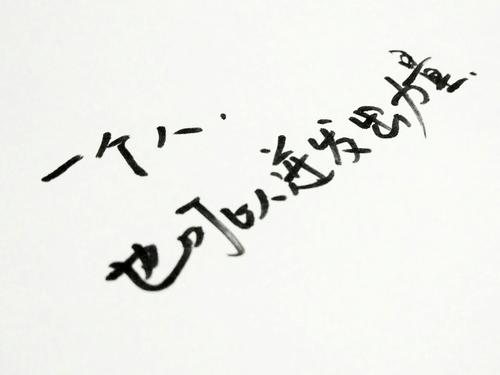 一个人.
也可以迸发出力量.